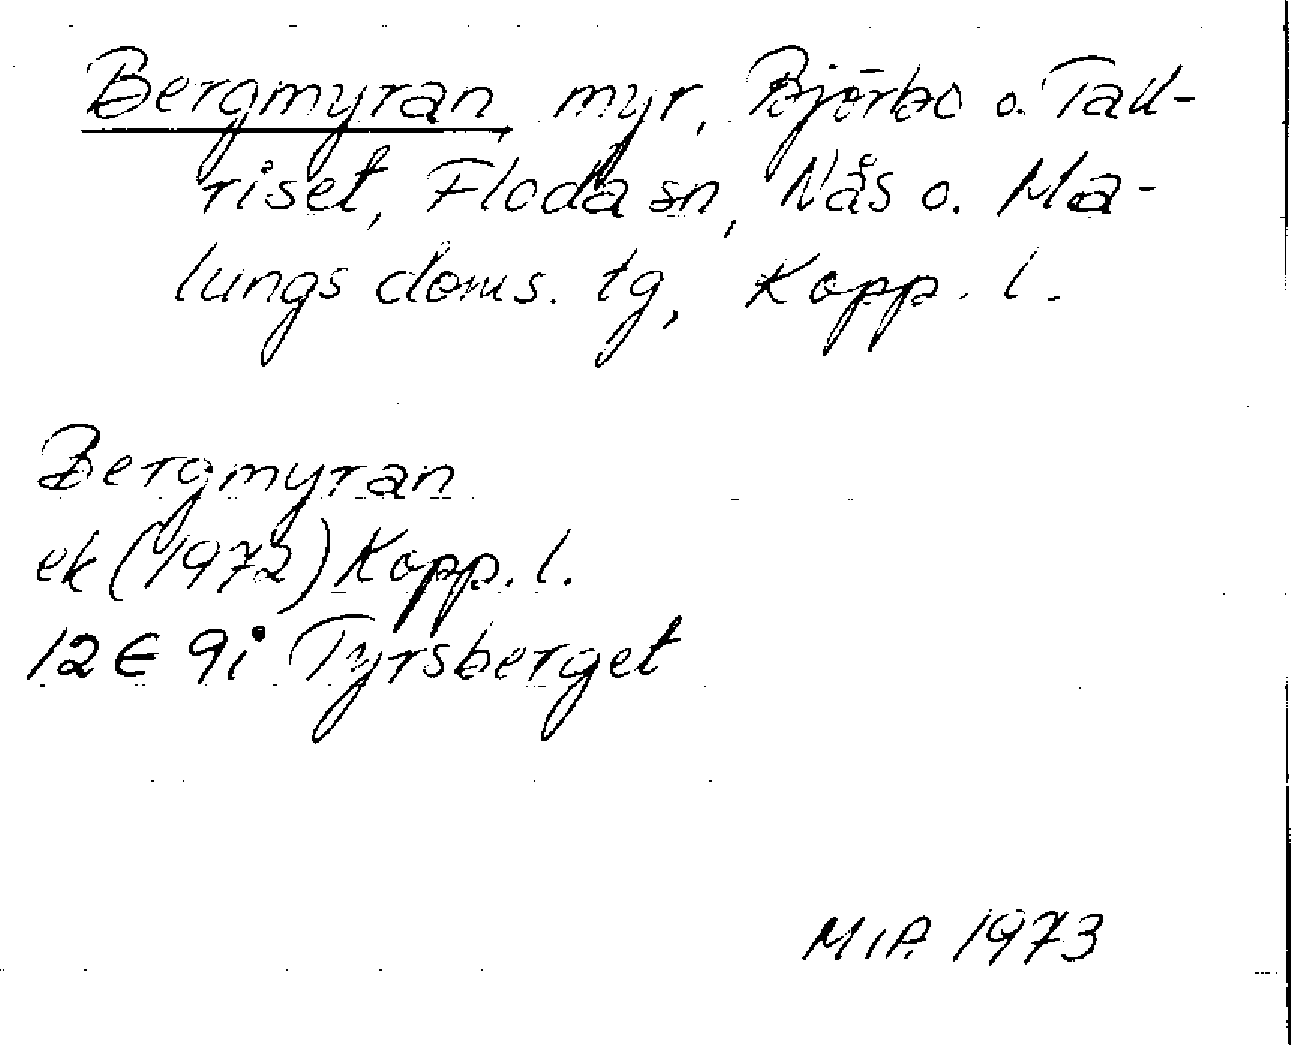 Bergmyran, myr, Björbo o. Tall-
riset, Floda sn, Nås o. Ma-
lungs doms. tg, Kopp. l.
Bergmyran
ek (1972) Kopp. l.
12E 9i Tyrsberget
MiP. 1973